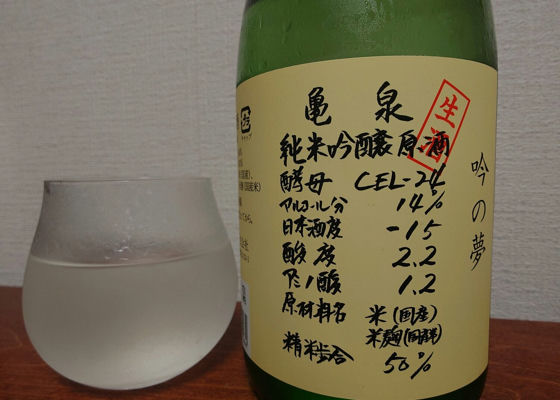 亀 泉
生酒
純米吟醸原酒
酵母 CEL-24
アルコール分 14%
日本酒度 -15
酸度 2.2
アミノ酸 1.2
原材料名 米(国産)
米麹(国産米)
精米歩合 50%
吟の夢